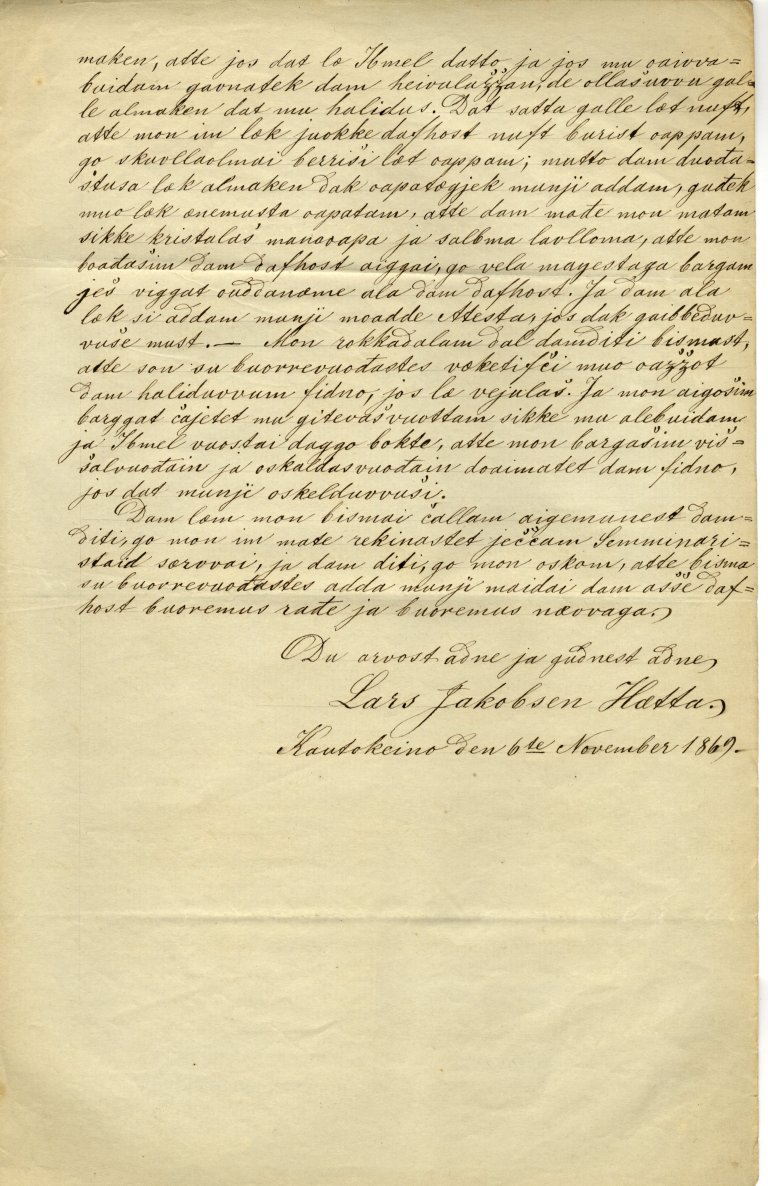 maken, atte jos dat læ Ibmel datto, ja jos mu oaivva=
buidam gavnatek dam heivulažžan, de ollašuvvu gal=
le almaken dat mu halidus. Dat satta galle læt nuft,
atte mon im læk juokke dafhost nuft burist oappam,
go skuvllaolmai berriši læt oappam; mutto dam duođa=
štusa læk almaken dak oapatægjek munji addam, guđek
muo læk ænemusta oapatam, atte dam mađe mon matam
sikke kristalaš manaoapa ja salbma lavlloma, atte mon
boađašim dam dafhost aiggai, go vela mayestaga bargam
ješ viggat ouddanæme ala dam dafhost. Ja dam ala
læk si addam munji moadde Attestar, jos dak gaibbeduv=
vuše must. — Mon rokkadalam dal damditi bismast,
atte son su buorrevuođastes væketifči muo oažžot
dam haliduvvum fidno, jos læ vejulaš. Ja mon aigošim
barggat čajetet mu gitevašvuottam sikke mu alebuidam
ja Ibmel vuostai daggo bokte, atte mon bargašim viš=
šalvuođain ja oskaldasvuođain doaimatet dam fidno,
jos dat munji oskelduvvuši.
Dam læm mon bismai čallam aigemunest dam=
diti, go mon im mate rekinastet ječčam Semminari=
staid særvvai, ja dam diti, go mon oskom, atte bisma
su buorrevuođastes adda munji maidai dam ašše daf=
host buoremus rađe ja buoremus nævvaga.
Du arvost adne ja gudnest adne
Lars Jakobsen Hætta.
Kautokeino den 6te November 1869.